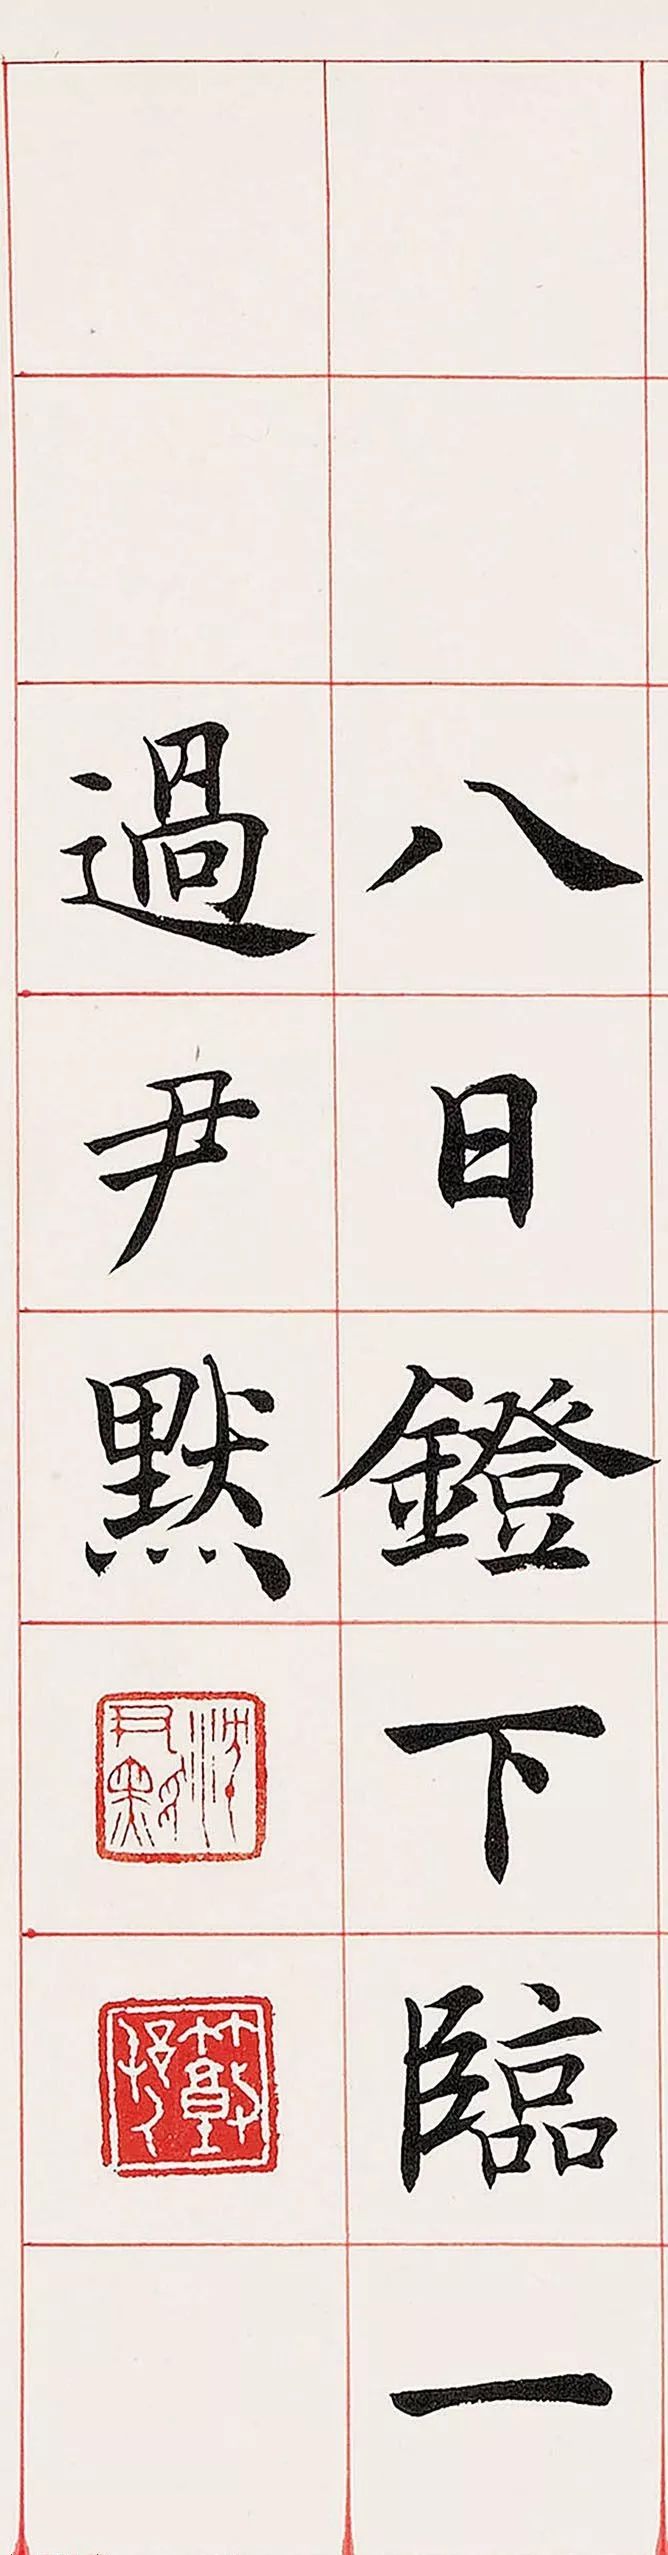 八日鐙下臨一
過尹默